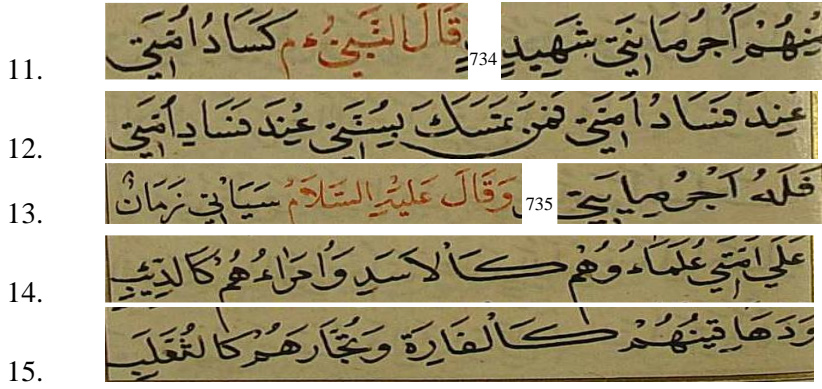 11. مِنْهُمْ اَجْرُ مَايَتِي شَهِيدٍ 734 قَالَ النَّبِيُّ ءم كَسَادُ اُمَّتِي
12. عِنْدَ فَسَادُ اُمَّتِي فَمَنْ تَمَسَّكَ بِسُنَّتِي عِنْدَ فَسَادِ اُمَّتِي
13. فَلَهُ اَجْرُ مِايَتِي 735 وَقَالَ عَلَيْهِ السَّلَامُ سَيَاتِي زَمَانٌ
14. عَلَي اُمَّتِي عُلَمَاءُوهُمْ كَالاَسَدِ وَاُمَرَاءُهُمْ كَالذِّيبِ
15. وَدَهَاقِينُهُمْ كَالْفَارَةِ وَتُجَّارَهُمْ كَالثَّعْلَبِ